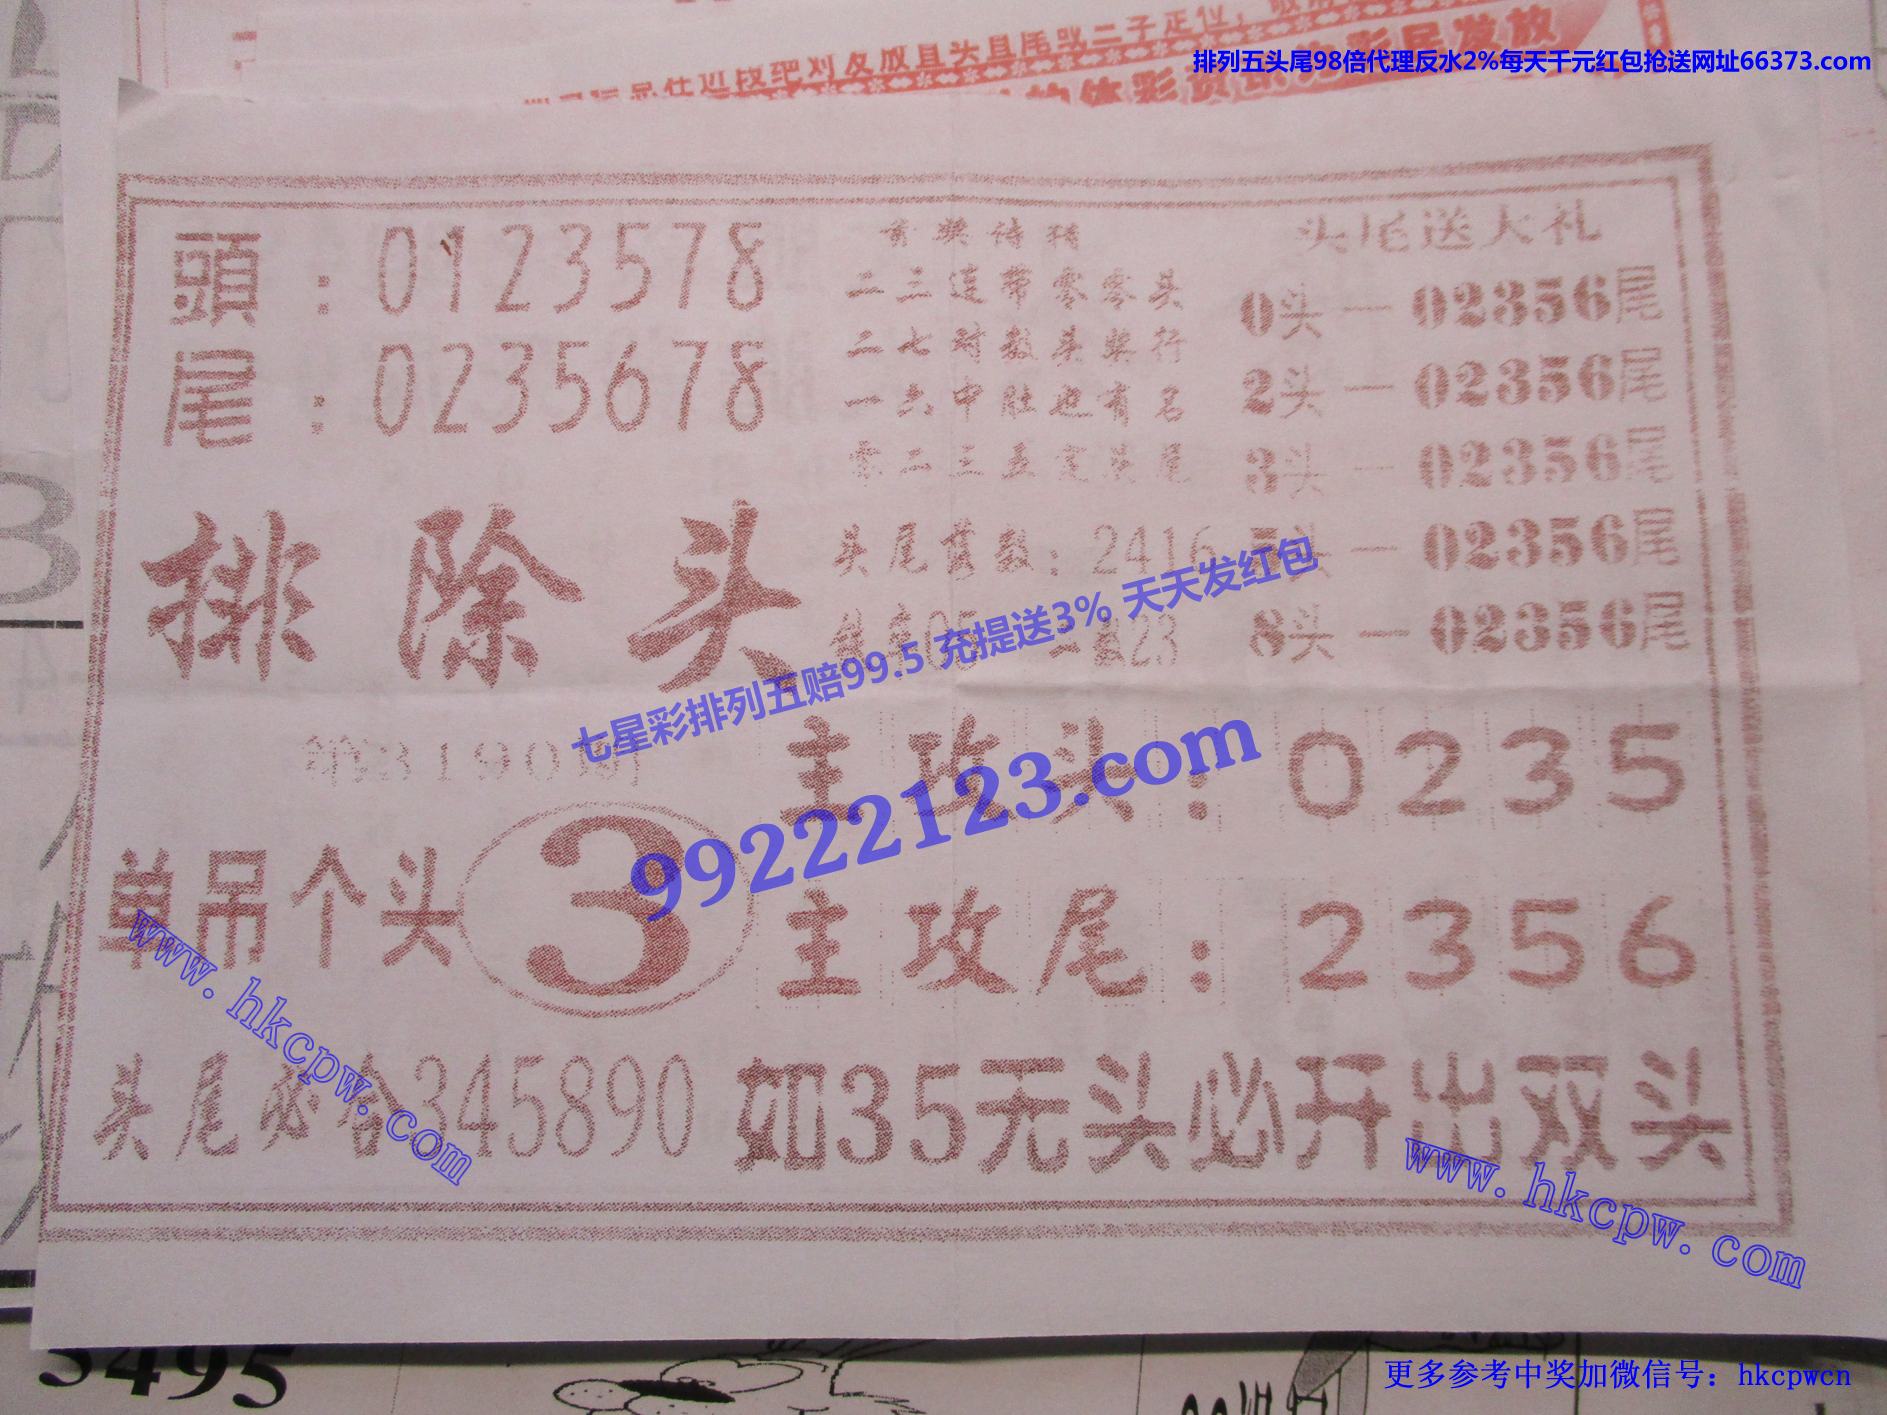 排列五头尾98倍代理反水2%每天千元红包抢送网址66373.com
在近段绝对发放直头直尾或二字定位
頭：0123578
尾：0235678
首奖诗猜
二三连带零零头
二七对数头奖行
一六中肚也有名
零二三五定是尾
头尾送大礼
0头—02356尾
2头—02356尾
3头—02356尾
5头—02356尾
8头—02356尾
排除头
头尾首数：2416
23
七星彩排列五赔99.5 充提送3% 天天发红包
99222123.com
3190期
主攻头：0235
单吊个头3
主攻尾：2356
头尾必合345890
如35无头必开出双头
www.hkcpw.com
www.hkcpw.com
3495
更多参考中奖加微信号：hkcpwcn